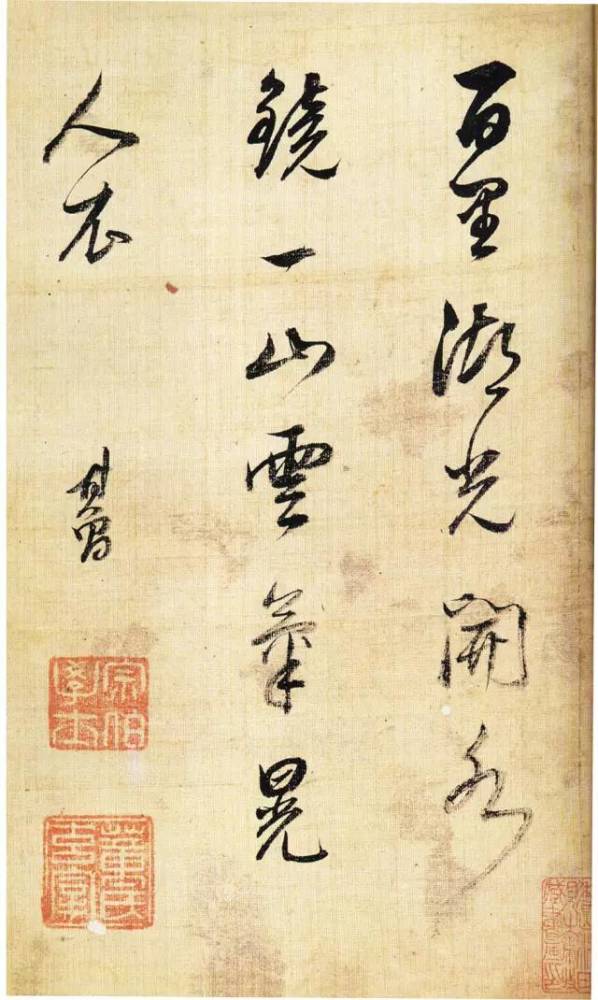 百里湖光開水
鏡一山雲氣晃
人衣
其昌
宗伯學士
董氏玄宰